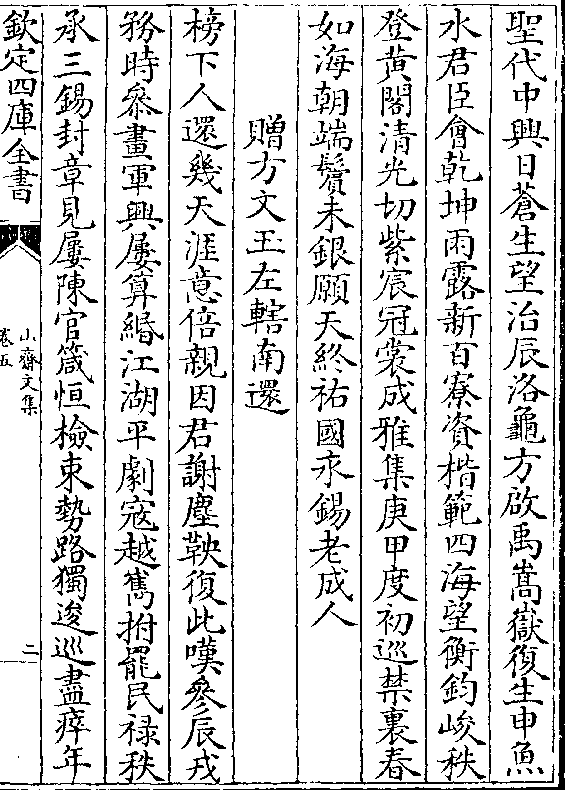 聖代中興日蒼生望治辰洛龜方啟禹嵩嶽復生申魚
水君臣會乾坤雨露新百寮資楷範四海望衡鈞峻秩
登黃閣清光切紫宸冠裳成雅集庚甲度初巡禁裏春
如海朝端鬢未銀願天終祐國永錫老成人
贈方文玉左轄南還
榜下人還幾天涯意倍親因君謝塵鞅復此嘆參辰戎
務時叅畫軍興屢算緡江湖平劇寇越雋拊罷民祿秩
承三錫封章見屢陳官箴恒檢束勢路獨逡巡盡瘁年
欽定四庫全書
山齋文集
卷五
二